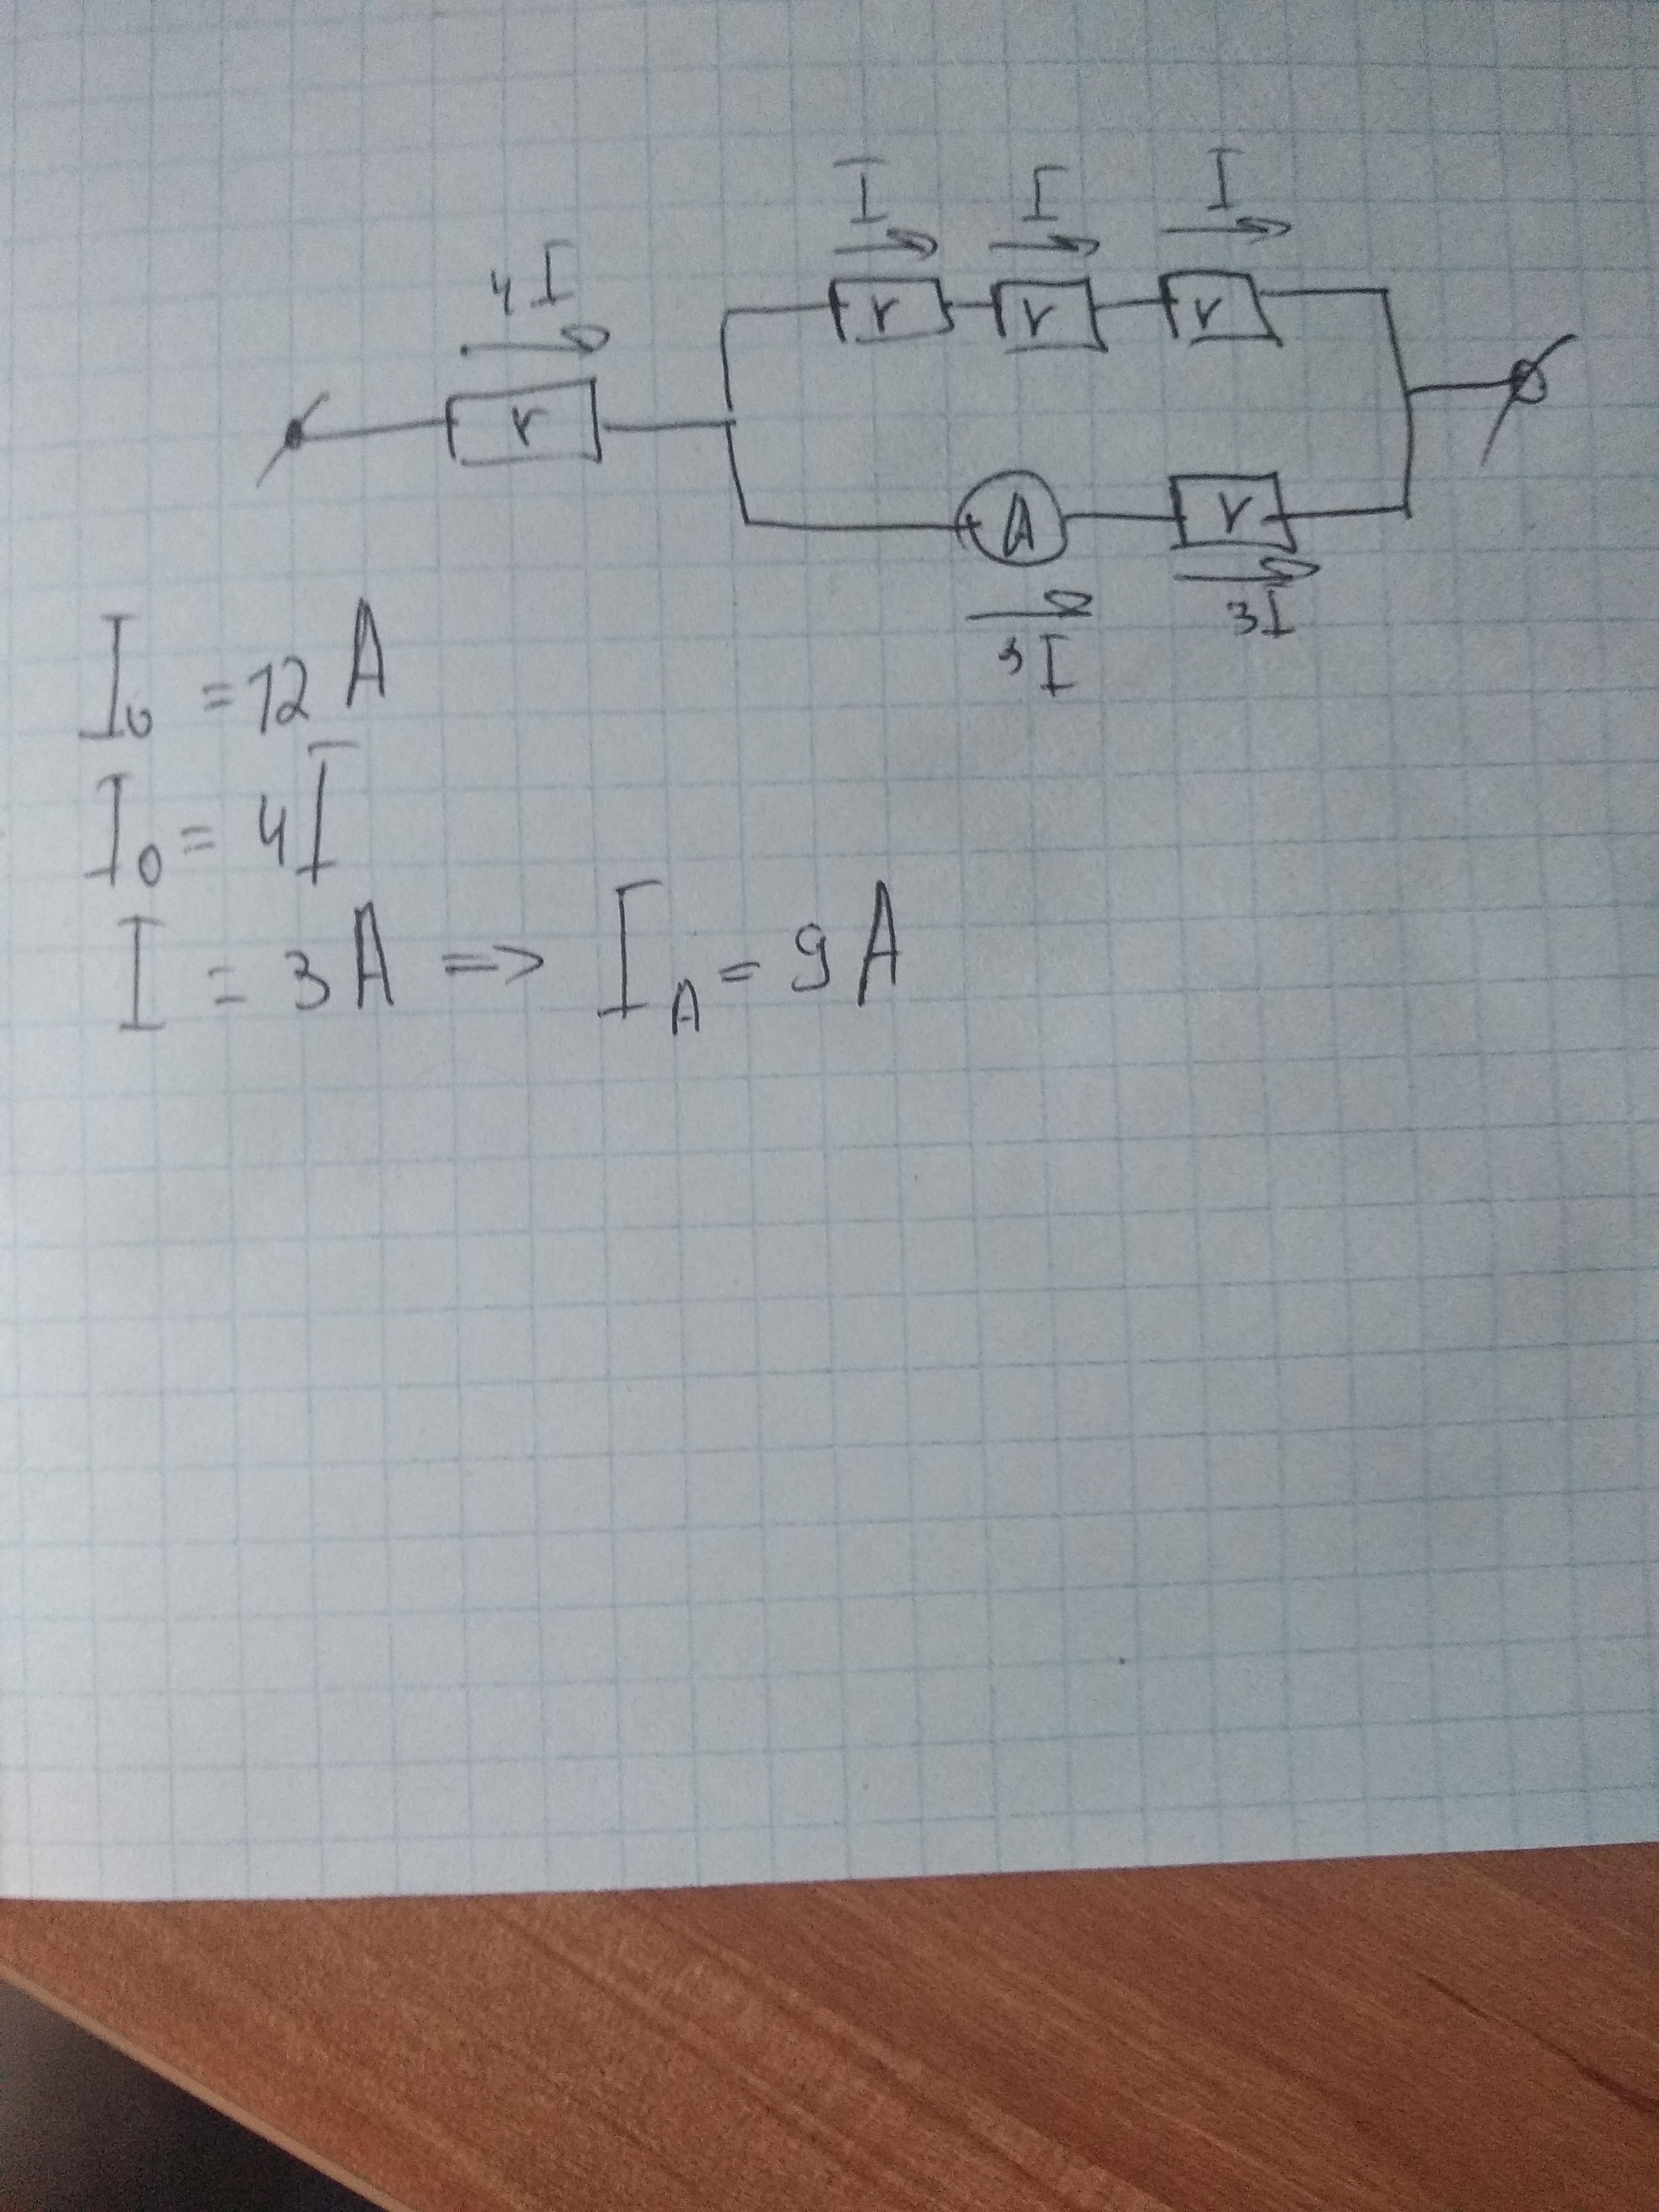 I I I
4I
r r r
r
A r
3I
3I
I₀ = 12 A
I₀ = 4I
I = 3A => I_A = 9A